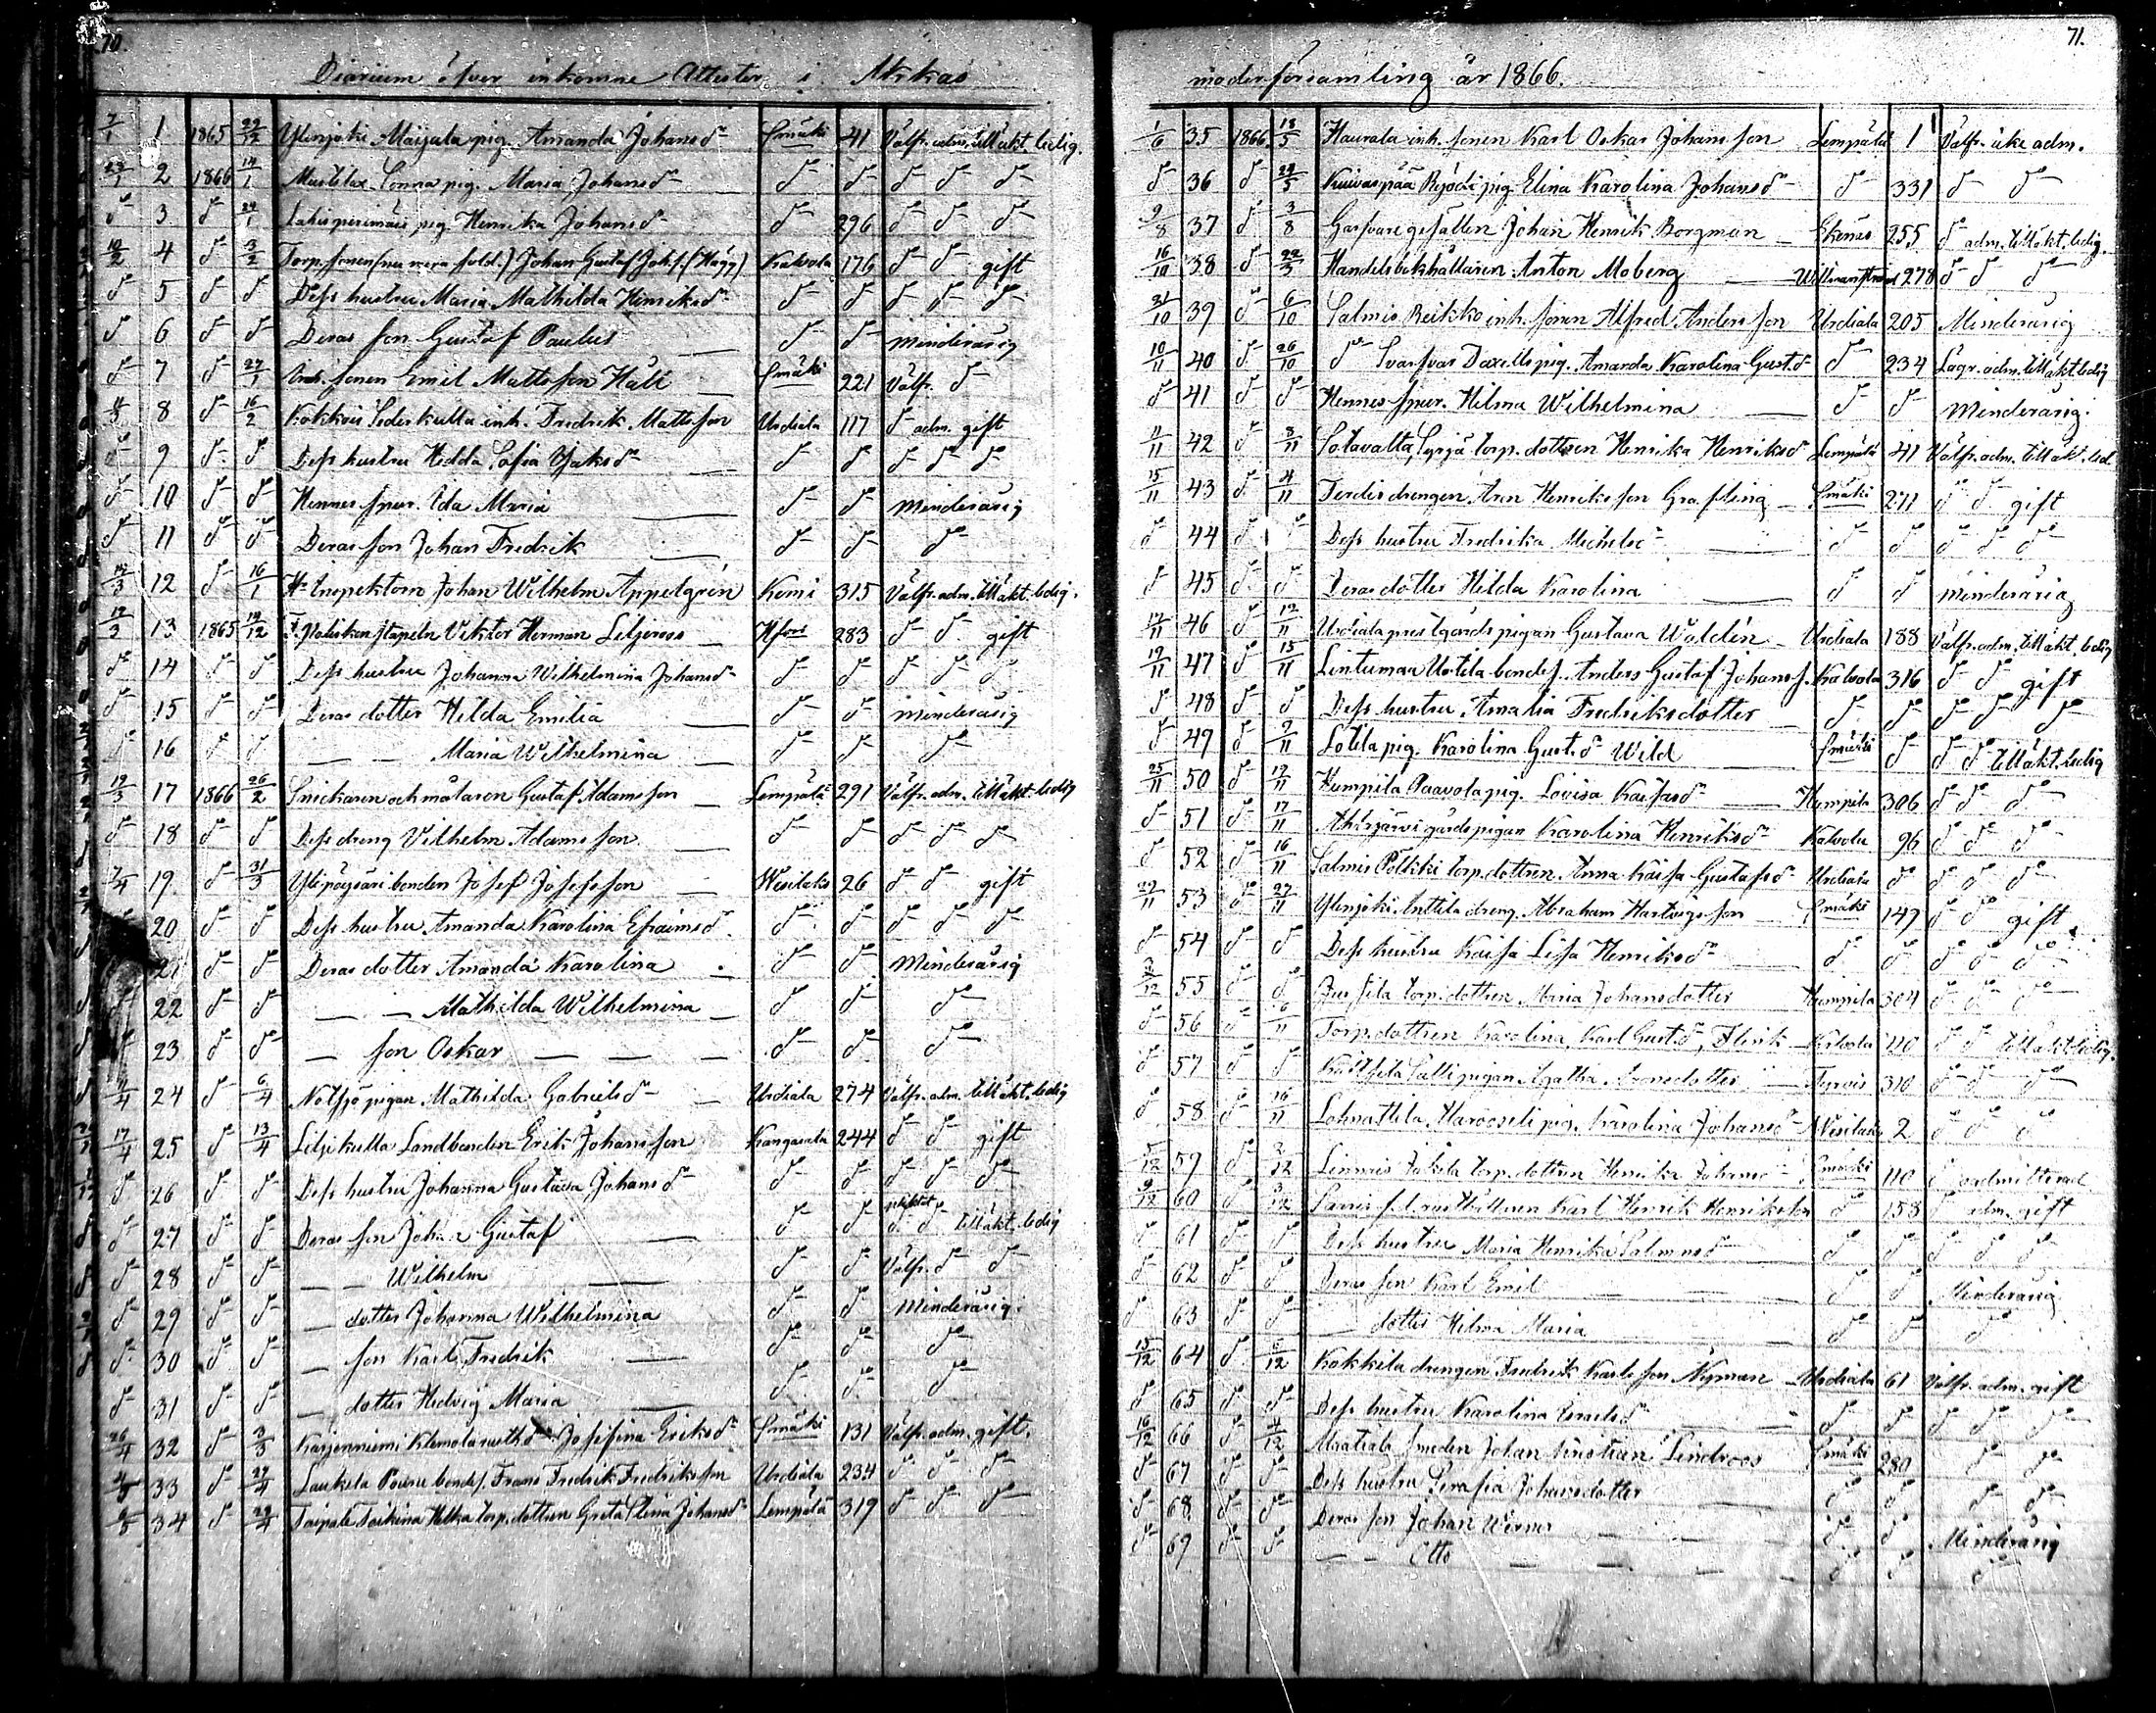 70.
Diarium öfver inkomne Attester i Akkas
7/1 1 1865 29/12 Ylenjoki Maijala pig. Amanda Johansdr Smäki 41 Välfr. adm. till äkt. ledig.
23/1 2 1866 14/1 Mustila Sonna pig. Maria Johansdr dr dr dr dr dr
dr 3 dr 29/1 pig. Henrika Johansdr dr 296 dr dr dr
10/2 4 dr 3/2 Torp. sonen (nu mera sold.) Johan Gustaf Joh.s. (Hägg) Kalvola 176 dr dr gift
dr 5 dr dr Dess hustru Maria Mathilda Henriksdr dr dr dr dr dr
dr 6 dr dr Deras son Gustaf Paulus dr dr minderårig
dr 7 dr 27/1 Inh. sonen Emil Mattsson Häll Smäki 221 Välfr. dr
4/3 8 dr 16/2 inh. Fredrik Mattsson Urdiala 117 dr adm. gift
dr 9 dr dr Dess hustru Hedda Sofia Isaksdr dr dr dr dr dr
dr 10 dr dr Hennes spur. Ida Maria dr dr minderårig
dr 11 dr dr Deras son Johan Fredrik dr dr dr
12/3 12 dr 16/1 Hr Inspektorn Johan Wilhelm Appelgrén Kemi 315 Välfr. adm. till äkt. ledig.
12/3 13 1865 14/12 Viktor Herman Liljeroos Hfors 283 dr dr gift
dr 14 dr dr Dess hustru Johanna Wilhelmina Johansdr dr dr dr dr dr
dr 15 dr dr Deras dotter Hilda Emilia dr dr minderårig
dr 16 dr dr — — Maria Wilhelmina dr dr dr
12/3 17 1866 26/2 Snickaren och målaren Gustaf Adamsson Lempälä 291 Välfr. adm. till äkt. ledig
dr 18 dr dr Dess dreng Vilhelm Adamsson dr dr dr dr dr
7/4 19 dr 31/3 Ylipöysäri bonden Josef Josefsson Wesilaks 26 dr dr gift
20 dr dr Dess hustru Amanda Karolina Efraimsdr dr dr dr dr dr
21 dr dr Deras dotter Amanda Karolina dr dr Minderårig
22 dr dr — — Mathilda Wilhelmina dr dr dr
23 dr dr — son Oskar dr dr dr
11/4 24 dr 6/4 Nötsjö pigan Mathilda Gabrielsdr Urdiala 274 Välfr. adm. till äkt. ledig
17/4 25 dr 13/4 Liljekulla Landbonden Erik Johansson Kangasala 244 dr dr gift
dr 26 dr dr Dess hustru Johanna Gustava Johansdr dr dr dr dr dr
dr 27 dr dr Deras son Johan Gustaf dr dr dr dr till äkt. ledig
dr 28 dr dr — — Wilhelm dr dr Välfr. dr dr
dr 29 dr dr — dotter Johanna Wilhelmina dr dr minderårig.
dr 30 dr dr — son Karl Fredrik dr dr dr
dr 31 dr dr — dotter Hedvig Maria dr dr dr
26/4 32 dr 3/3 Karjenniemi Klemola Josefina Eriksdr Smäki 131 Välfr. adm. gift.
4/5 33 dr 29/4 Laukela bondes. Frans Fredrik Fredriksson Urdiala 234 dr dr dr
5/5 34 dr 29/4 Taipale torp. dottren Greta Stina Johansdr Lempälä 319 dr dr dr
71.
moderförsamling år 1866.
1/6 35 1866 18/5 Haurala inh. sonen Karl Oskar Johansson Lempälä 1 Välfr. icke adm.
dr 36 dr 24/5 Kuivaspää pig. Elina Karolina Johansdr dr 331 dr dr
9/8 37 dr 3/8 Garfvare gesällen Johan Henrik Borgman Ekenäs 255 dr adm. till äkt. ledig.
16/10 38 dr 22/3 Handelsbokhållaren Anton Moberg Willmanstrand 278 dr dr dr
31/10 39 dr 6/10 Salmis Reikko inh. sonen Alfred Andersson Urdiala 205 Minderårig
10/11 40 dr 26/10 dr pig. Amanda Karolina Gust.dr dr 234 Lagr. adm. till äkt. ledig
dr 41 dr dr Hennes spur. Hilma Wilhelmina dr dr Minderårig.
11/11 42 dr 8/11 Sotavalta Syrjä torp. dottren Henrika Henriksdr Lempälä 41 Välfr. adm. till äkt. led.
15/11 43 dr 4/11 drengen Aron Henriksson Smäki 271 dr dr gift
dr 44 dr Dess hustru Fredrika Michelsdr dr dr dr dr dr
dr 45 dr dr Deras dotter Hilda Karolina dr dr minderårig
17/11 46 dr 12/11 Urdiala prestgårds pigan Gustava Waldén Urdiala 188 Välfr. adm. till äkt. ledig
19/11 47 dr 15/11 Lintumaa Uotila bondes. Anders Gustaf Johanss. Kalvola 316 dr dr gift
dr 48 dr dr Dess hustru Amalia Fredriksdotter dr dr dr dr dr
dr 49 dr 7/11 Lotila pig. Karolina Gust.dr Wild Smäki dr dr dr till äkt. ledig
25/11 50 dr 19/11 Humpila Paavola pig. Lovisa Humpila 306 dr dr dr
dr 51 dr 17/11 gårds pigan Karolina Henriksdr Kalvola 96 dr dr dr
dr 52 dr 16/11 Salmis torp. dottren Anna Kaisa Gustafsdr Urdiala dr dr dr dr
27/11 53 dr 27/11 Ylenjoki Anttila dreng. Abraham Hartvigsson Smäki 149 dr dr gift.
dr 54 dr dr Dess hustru Kaisa Lisa Henriksdr dr dr dr dr dr
55 dr dr torp. dottren Maria Johansdotter Humpila 304 dr dr dr
dr 56 dr 6/11 Torp. dottren Karolina, Karl Gust.dr, Flink Kalvola 110 dr dr till äkt. ledig.
dr 57 dr dr pigan Agatha Aronsdotter Tyrvis 310 dr dr dr
dr 58 dr 16/11 pig. Karolina Johansdr Wesilaks 2 dr dr dr
5/12 59 dr 2/12 torp. dottren Henrika Johansdr Smäki 110 dr admitterad
9/12 60 dr 3/12 Saaris f.d. rusthållaren Karl Henrik Henriksson dr 158 dr adm. gift
dr 61 dr dr Dess hustru Maria Henrika Salmonsdr dr dr dr dr dr
dr 62 dr dr Deras son Karl Emil dr dr Minderårig
dr 63 dr dr — dotter Hilma Maria dr dr dr
15/12 64 dr 5/12 Kokkila drengen Fredrik Karlsson Nyman Urdiala 61 Välfr. adm. gift
dr 65 dr dr Dess hustru Karolina Israelsdr dr dr dr dr dr
16/12 66 dr 4/12 Maatiala smeden Johan Kristian Lindroos Smäki 280 dr dr
dr 67 dr dr Dess hustru Serafia Johansdotter dr dr dr dr
dr 68 dr dr Deras son Johan Werner dr dr Minderårig
dr 69 dr dr — — Otto dr dr dr